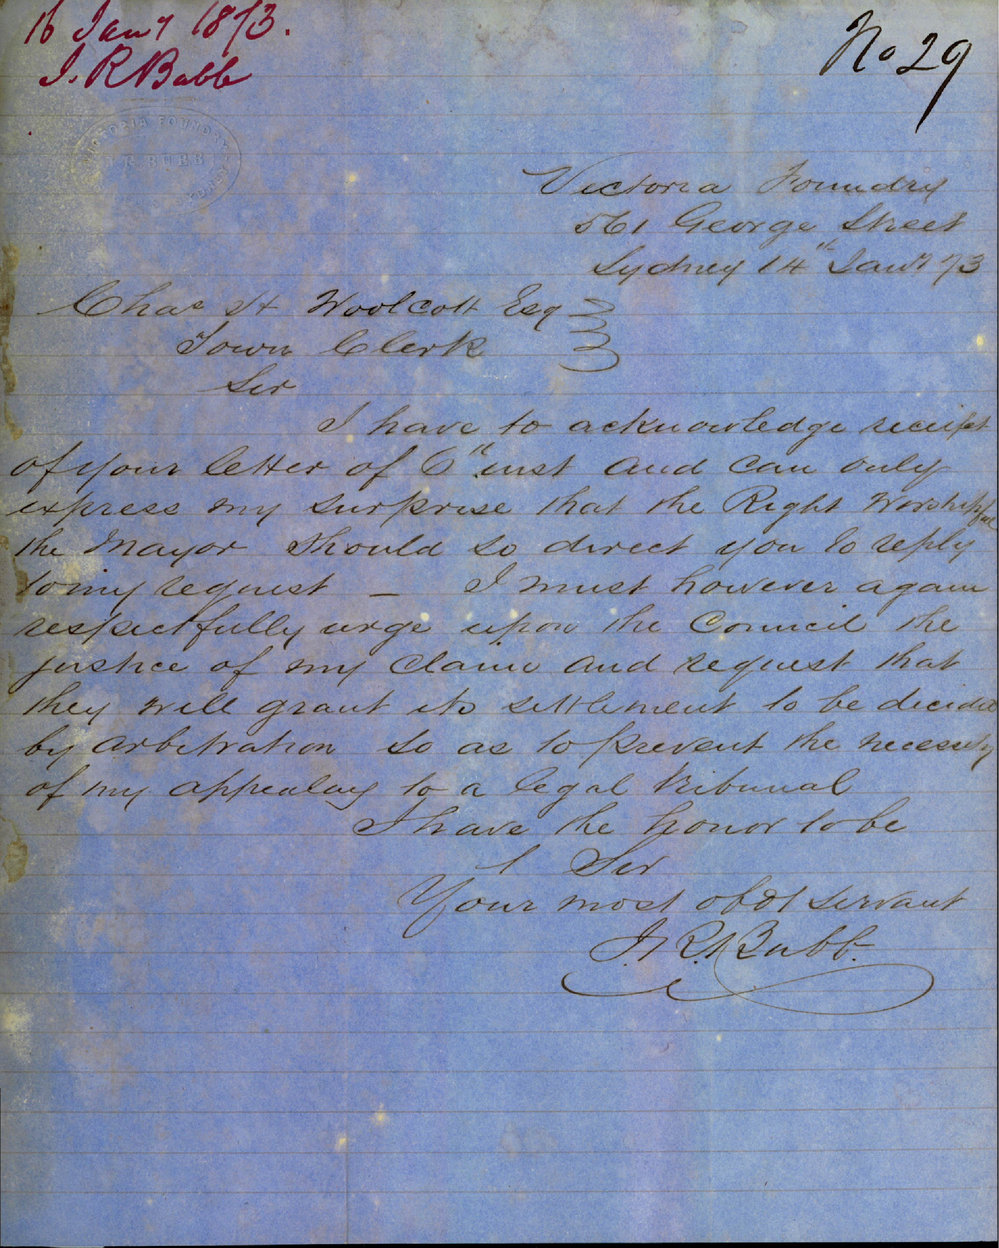 16 Jany 1873.
J. R Bubb
No 29
VICTORIA FOUNDRY
J.R. BUBB
SYDNEY
Victoria Foundry
561 George Street
Sydney 14th Jany 73
Chas H Woolcott Esq
Town Clerk
Sir
I have to acknowledge receipt
of your letter of 6th inst and can only
express my surprise that the Right Worshipful
the Mayor should so direct you to reply
to my request — I must however again
respectfully urge upon the Council the
justice of my claim and request that
they will grant its settlement to be decided
by arbitration so as to prevent the necessity
of my appealing to a legal tribunal
I have the honor to be
Sir
Your most obdt servant
J. R. Bubb.